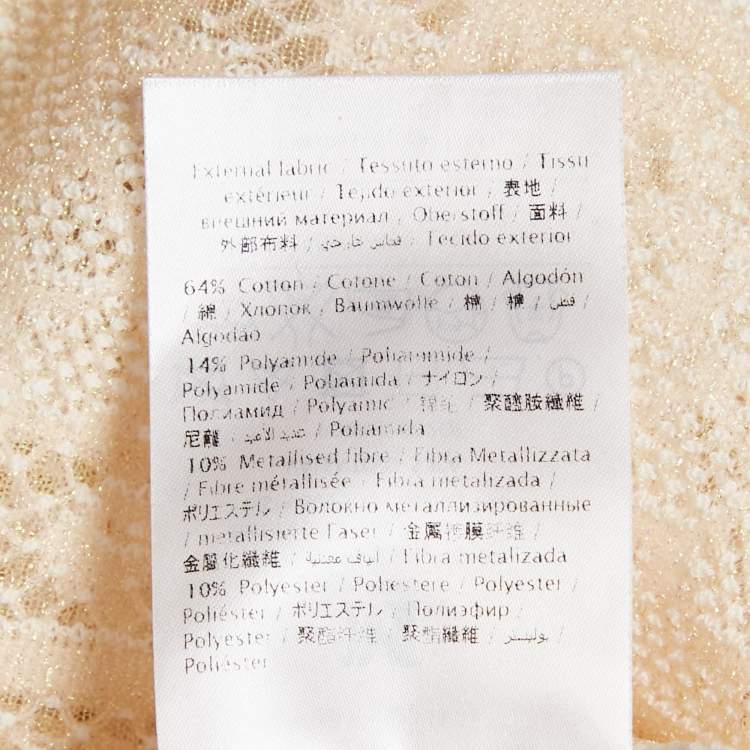 External fabric / Tessuto esterno / Tissu
extérieur / Tejido exterior / 表地 /
внешний материал / Oberstoff / 面料 /
外部布料 / قماش خارجي / Tecido exterior
64% Cotton / Cotone / Coton / Algodón
/ 綿 / Хлопок / Baumwolle / 棉 / 棉 / قطن /
Algodão
14% Polyamide / Poliammide /
Polyamide / Poliamida / ナイロン /
Полиамид / Polyamid / 锦纶 / 聚醯胺纖維 /
尼龍 / عديد الأميد / Poliamida
10% Metallised fibre / Fibra Metallizzata
/ Fibre métallisée / Fibra metalizada /
ポリエステル / Волокно металлизированные
/ metallisierte Faser / 金属镀膜纤维 /
金屬化纖維 / ألياف معدنية / Fibra metalizada
10% Polyester / Poliestere / Polyester /
Poliéster / ポリエステル / Полиэфир /
Polyester / 聚酯纤维 / 聚酯纖維 / بوليستر /
Poliéster